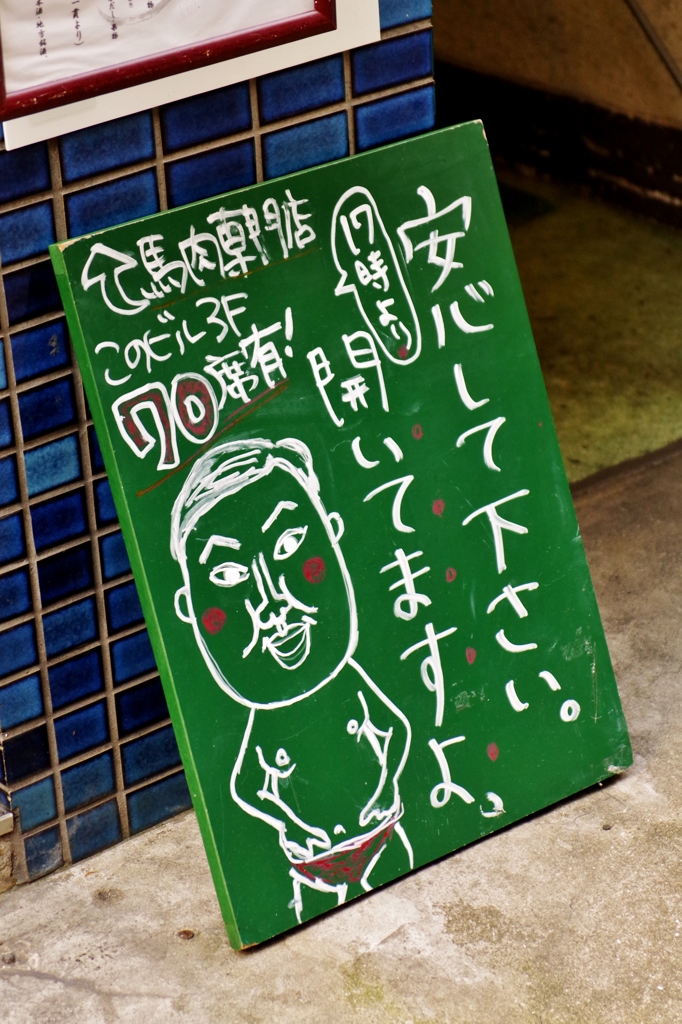 安心して下さい。
17時より
開いてますよ、
馬肉専門店
このビル3F
70席有!
一貫より)